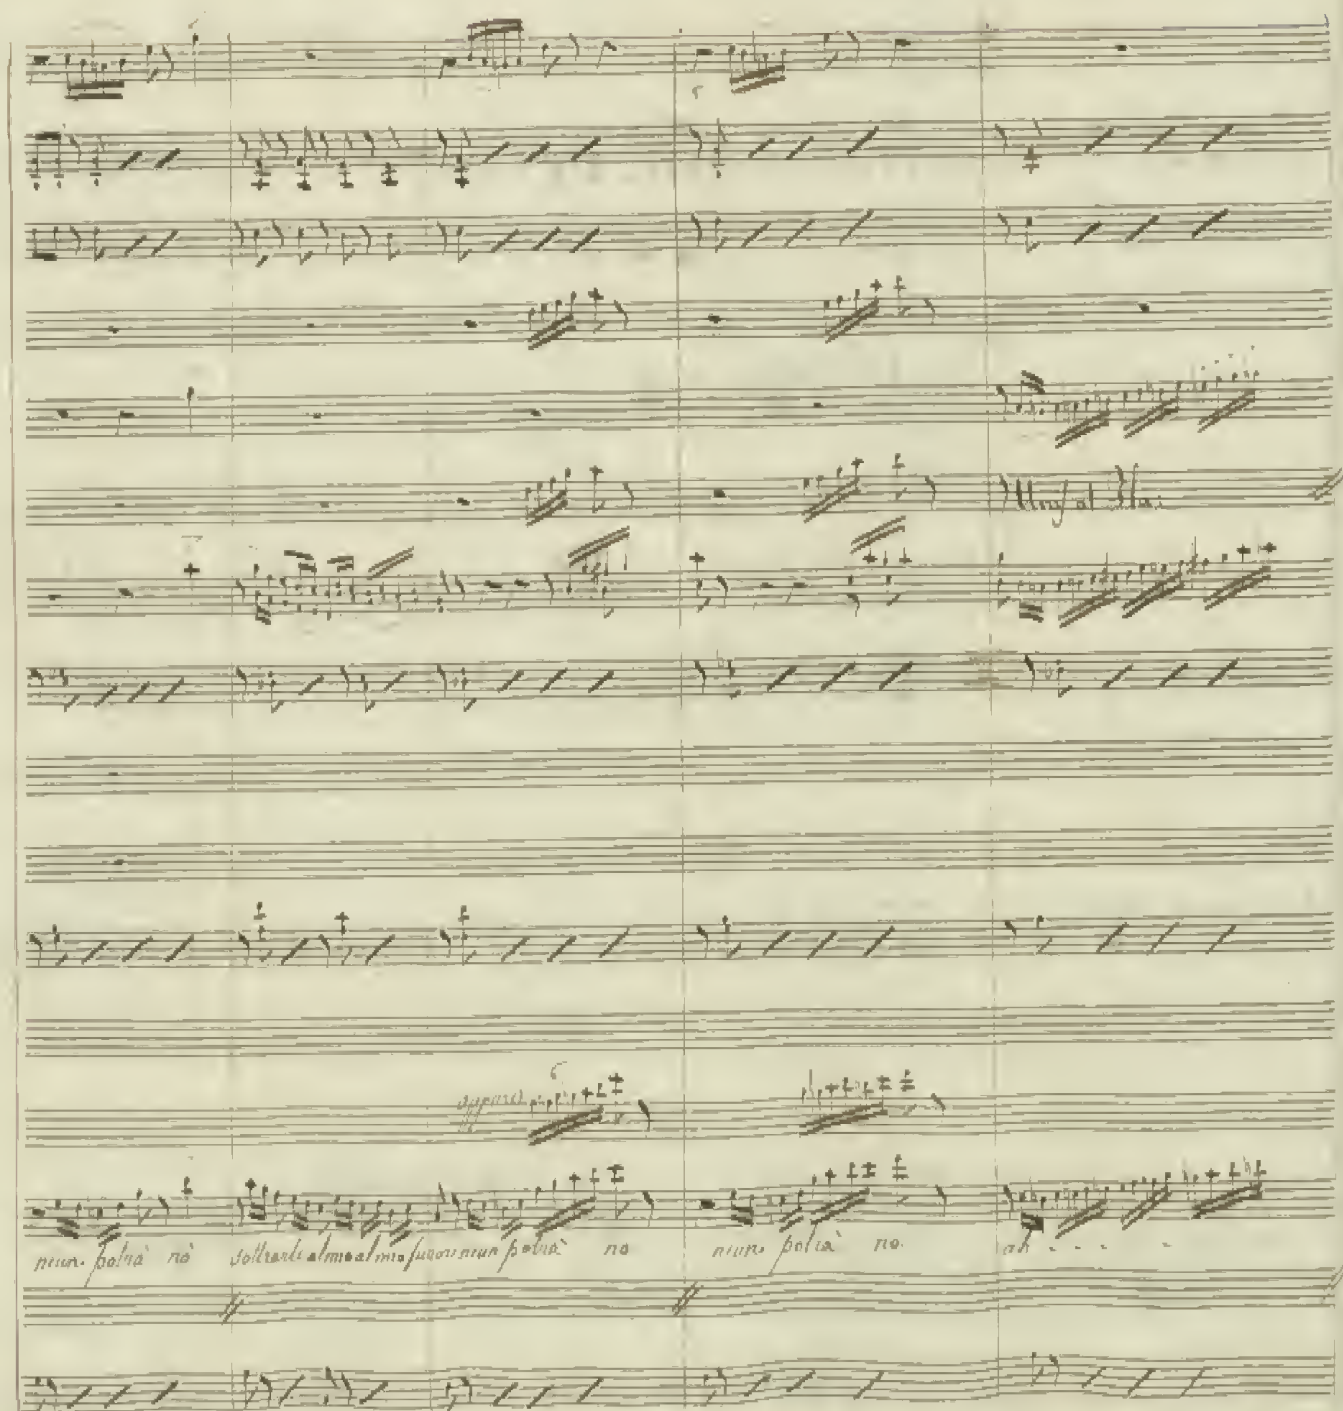 oppure
niun potrà nò sottrarti al mio al mio furor niun potrà no niun potrà no ah - - - -